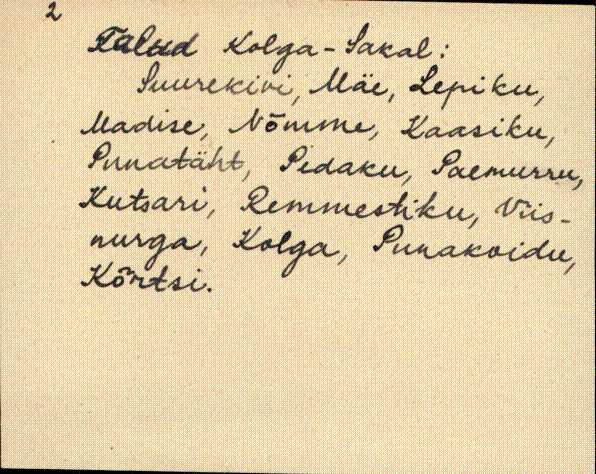 2
Talud Kolga-Sakal:
Suurekivi, Mäe, Lepiku,
Madise, Nõmme, Kaasiku,
Punatäht, Pedaku, Paemurru,
Kutsari, Remmestiku, Viis-
nurga, Kolga, Punakoidu,
Kõrtsi.